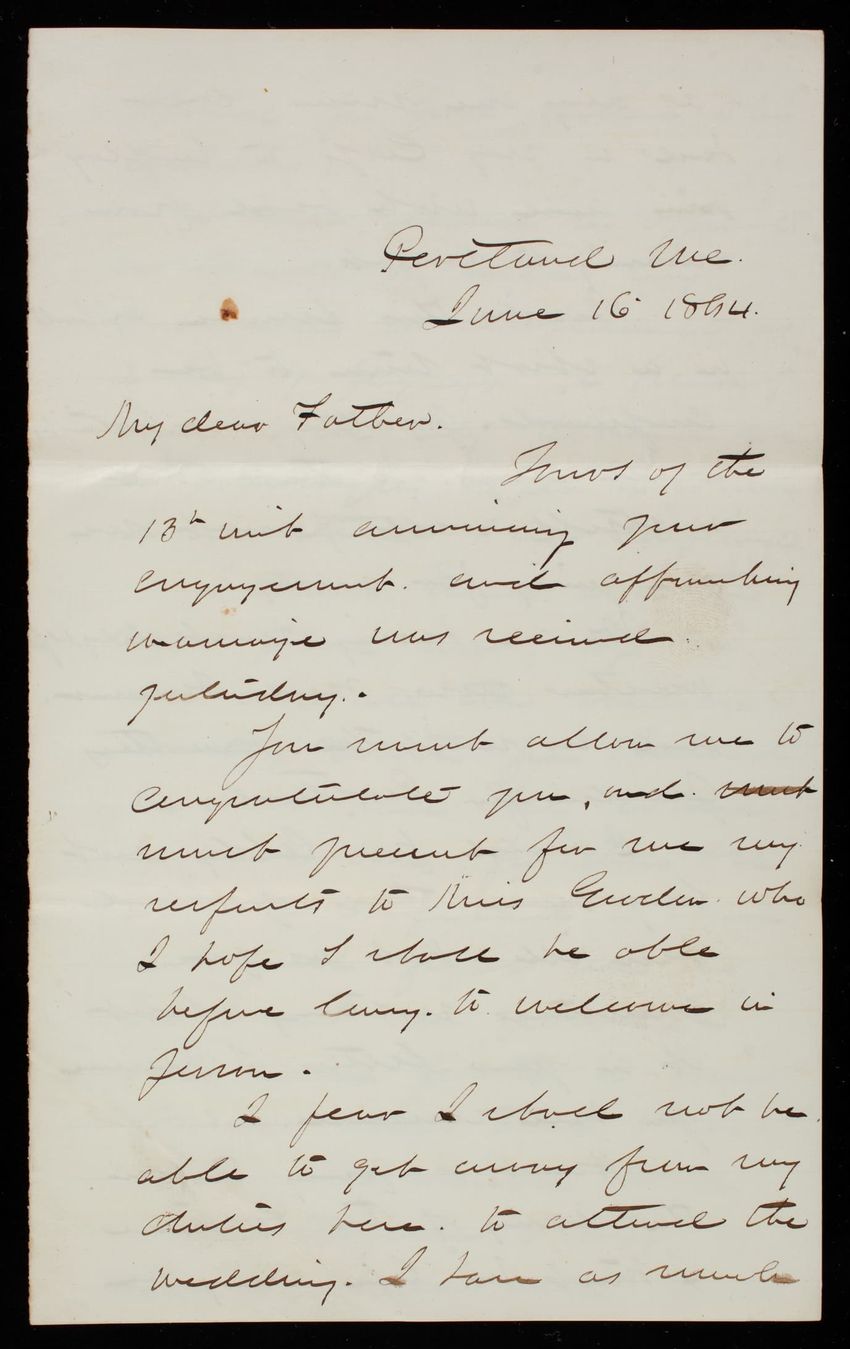 Portland Me.
June 16 1864.
My dear Father.
Yours of the
13th inst announcing your
engagement. and approaching
marriage was received
yesterday.
You must allow me to
congratulate you, and must
must present for me my
respects to Miss who
I hope I shall be able
before long. to welcome in
person.
I fear I shall not be
able to get away from my
duties here. to attend the
wedding. I have as much